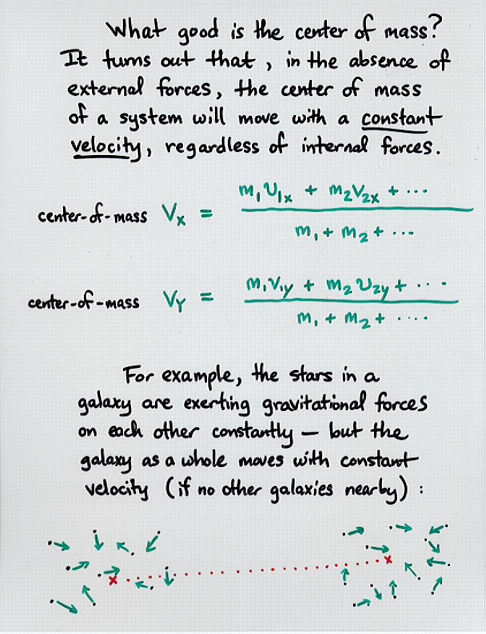 What good is the center of mass?
It turns out that, in the absence of
external forces, the center of mass
of a system will move with a constant
velocity, regardless of internal forces.
center-of-mass Vx = m₁v₁x + m₂v₂x + ···
m₁ + m₂ + ···
center-of-mass Vy = m₁v₁y + m₂v₂y + ···
m₁ + m₂ + ····
For example, the stars in a
galaxy are exerting gravitational forces
on each other constantly — but the
galaxy as a whole moves with constant
velocity (if no other galaxies nearby) :
x
x